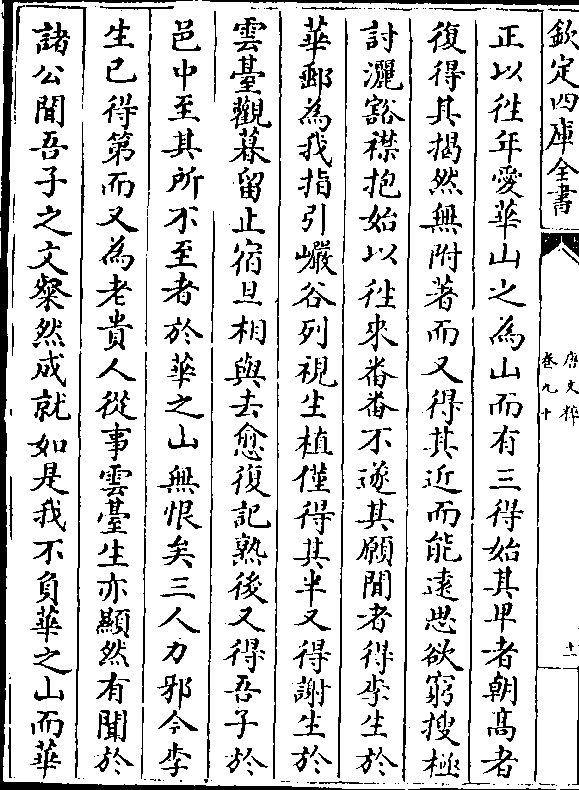 欽定四庫全書
唐文粹
卷九十
十一
正以徃年愛華山之為山而有三得始其卑者朝髙者
復得其揭然無附著而又得其近而能逺思欲窮搜極
討灑豁襟抱始以徃來畨畨不遂其願聞者得李生於
華郵為我指引巗谷列視生植僅得其半又得謝生於
雲臺觀暮留止宿旦相與去愈復記熟後又得吾子於
邑中至其所不至者於華之山無恨矣三人力邪今李
生已得第而又為老貴人從事雲臺生亦顯然有聞於
諸公聞吾子之文粲然成就如是我不負華之山而華